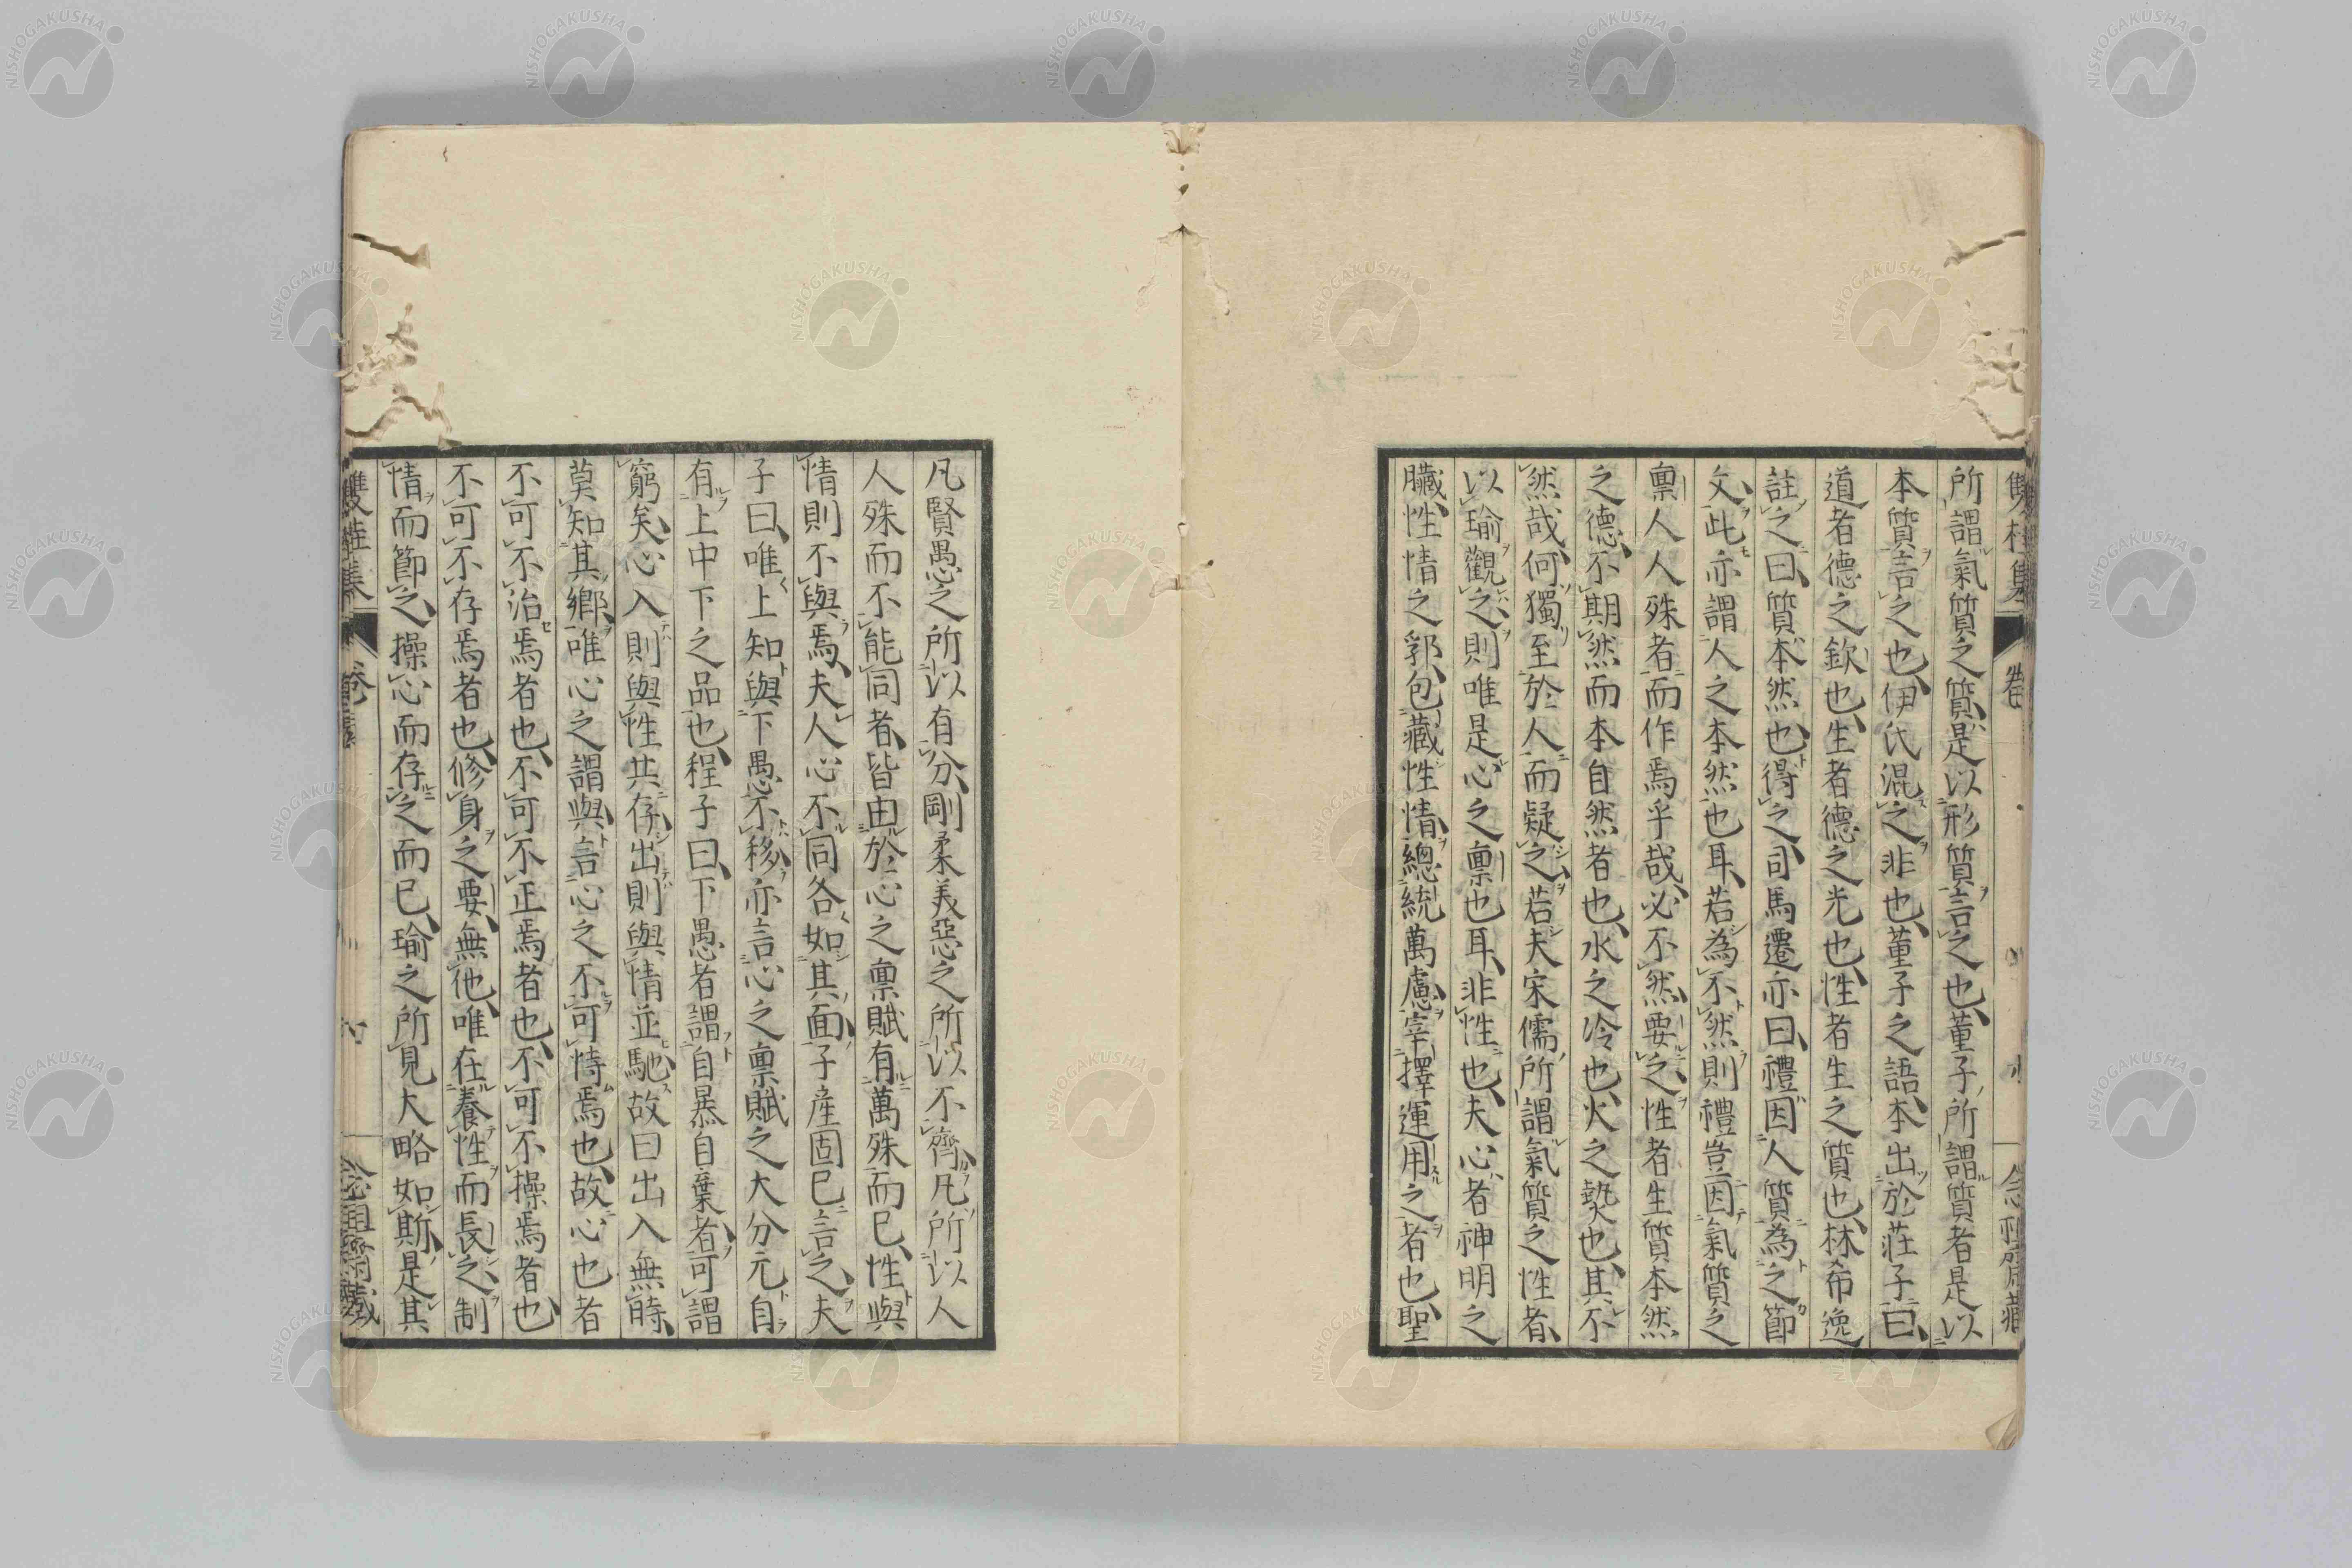 所謂氣質之質、是以形質言之也、董子所謂質者是以
本質言之也、伊氏混之非也、董子之語、本出於莊子、曰、
道者德之欽也、生者德之光也、性者生之質也、林希逸
註之曰、質本然也、得之、司馬遷亦曰、禮因人質為之節
文、此亦謂人之本然也耳、若為不然、則禮豈因氣質之
稟人人殊者而作焉乎哉、必不然、要之、性者生質本然
之德、不期然而本自然者也、水之冷也、火之熱也、其不
然哉、何獨至於人而疑之、若夫宋儒所謂氣質之性者、
以瑜觀之、則唯是心之稟也耳、非性也、夫心者神明之
臟、性情之郛、包藏性情、總統萬慮、宰擇運用之者也、聖
凡賢愚之所以有分、剛柔美惡之所以不齊、凡所以人
人殊而不能同者、皆由於心之稟賦有萬殊而已、性與
情則不與焉、夫人心不同各如其面、子產固已言之、夫
子曰、唯上知與下愚不移、亦言心之稟賦之大分元自
有上中下之品也、程子曰、下愚者謂自暴自棄者、可謂
窮矣、心入則與性共存、出則與情並馳、故曰出入無時、
莫知其鄉、唯心之謂與、言心之不可恃焉也、故心也者
不可不治焉者也、不可不正焉者也、不可不操焉者也、
不可不存焉者也、修身之要、無他、唯在養性而長之、制
情而節之、操心而存之而已、瑜之所見大略如斯、是其
雙桂集 卷 念祖齋藏